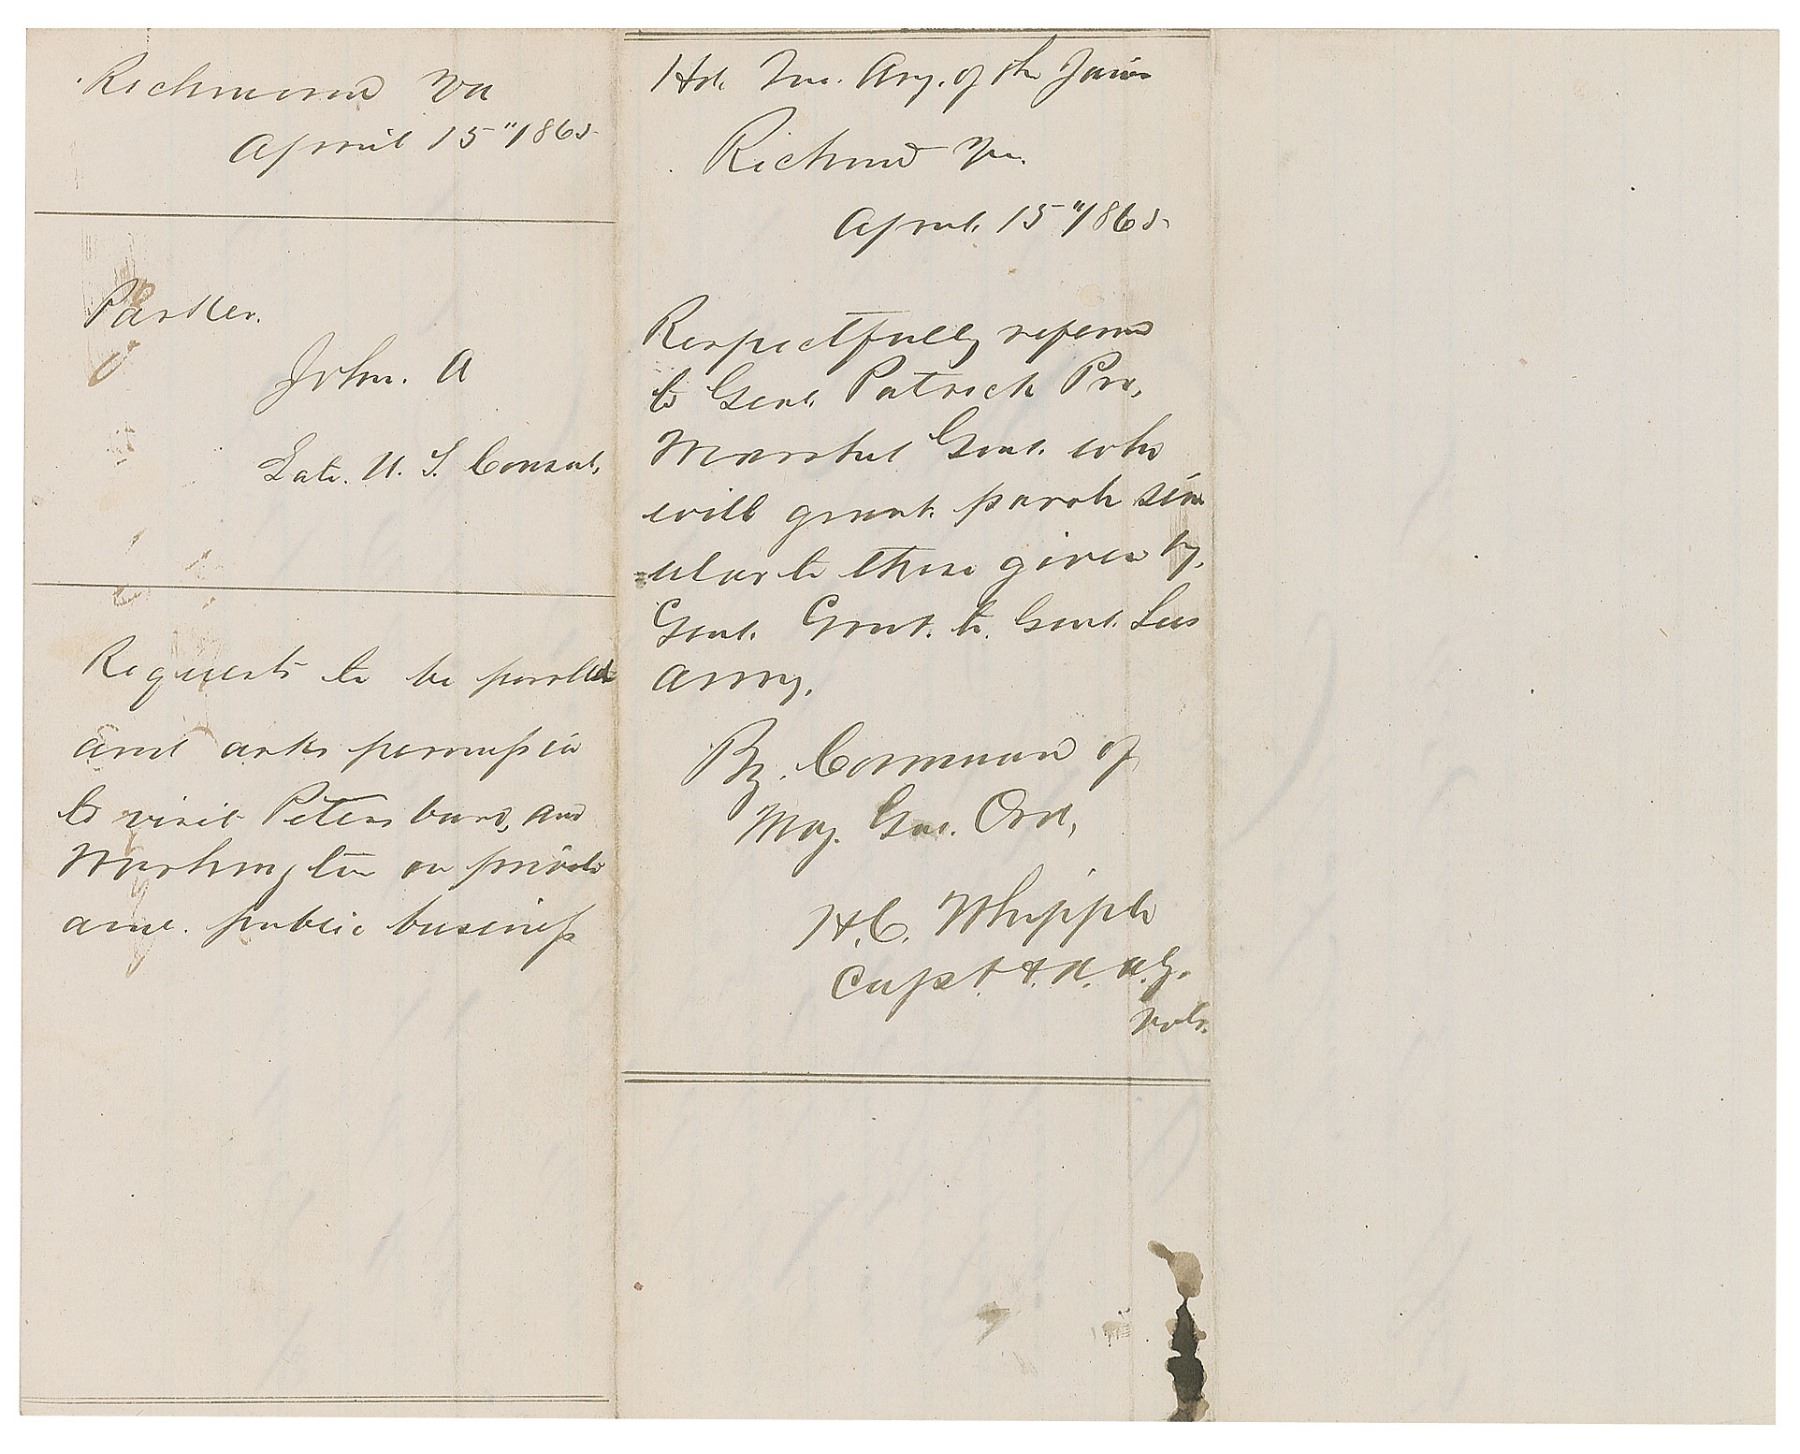 Richmond Va
April 15"/1865
Parker.
John. A
Late. U. S. Consul.
Requests to be parolled
and asks permission
to visit Petersburg, and
Washington on private
and. public business
Hd. Qrs. Army. of the James
Richmd Va.
April. 15"/1865
Respectfully referred
to Genl. Patrick Pro.
Marshal Genl. who
will grant. parole sim
=ular to those given by.
Genl. Grant. to. Genl. Lees
army.
By. Command of
Maj. Gen. Ord,
H. C. Whipple
Capt. & A. A. G.
Vols.